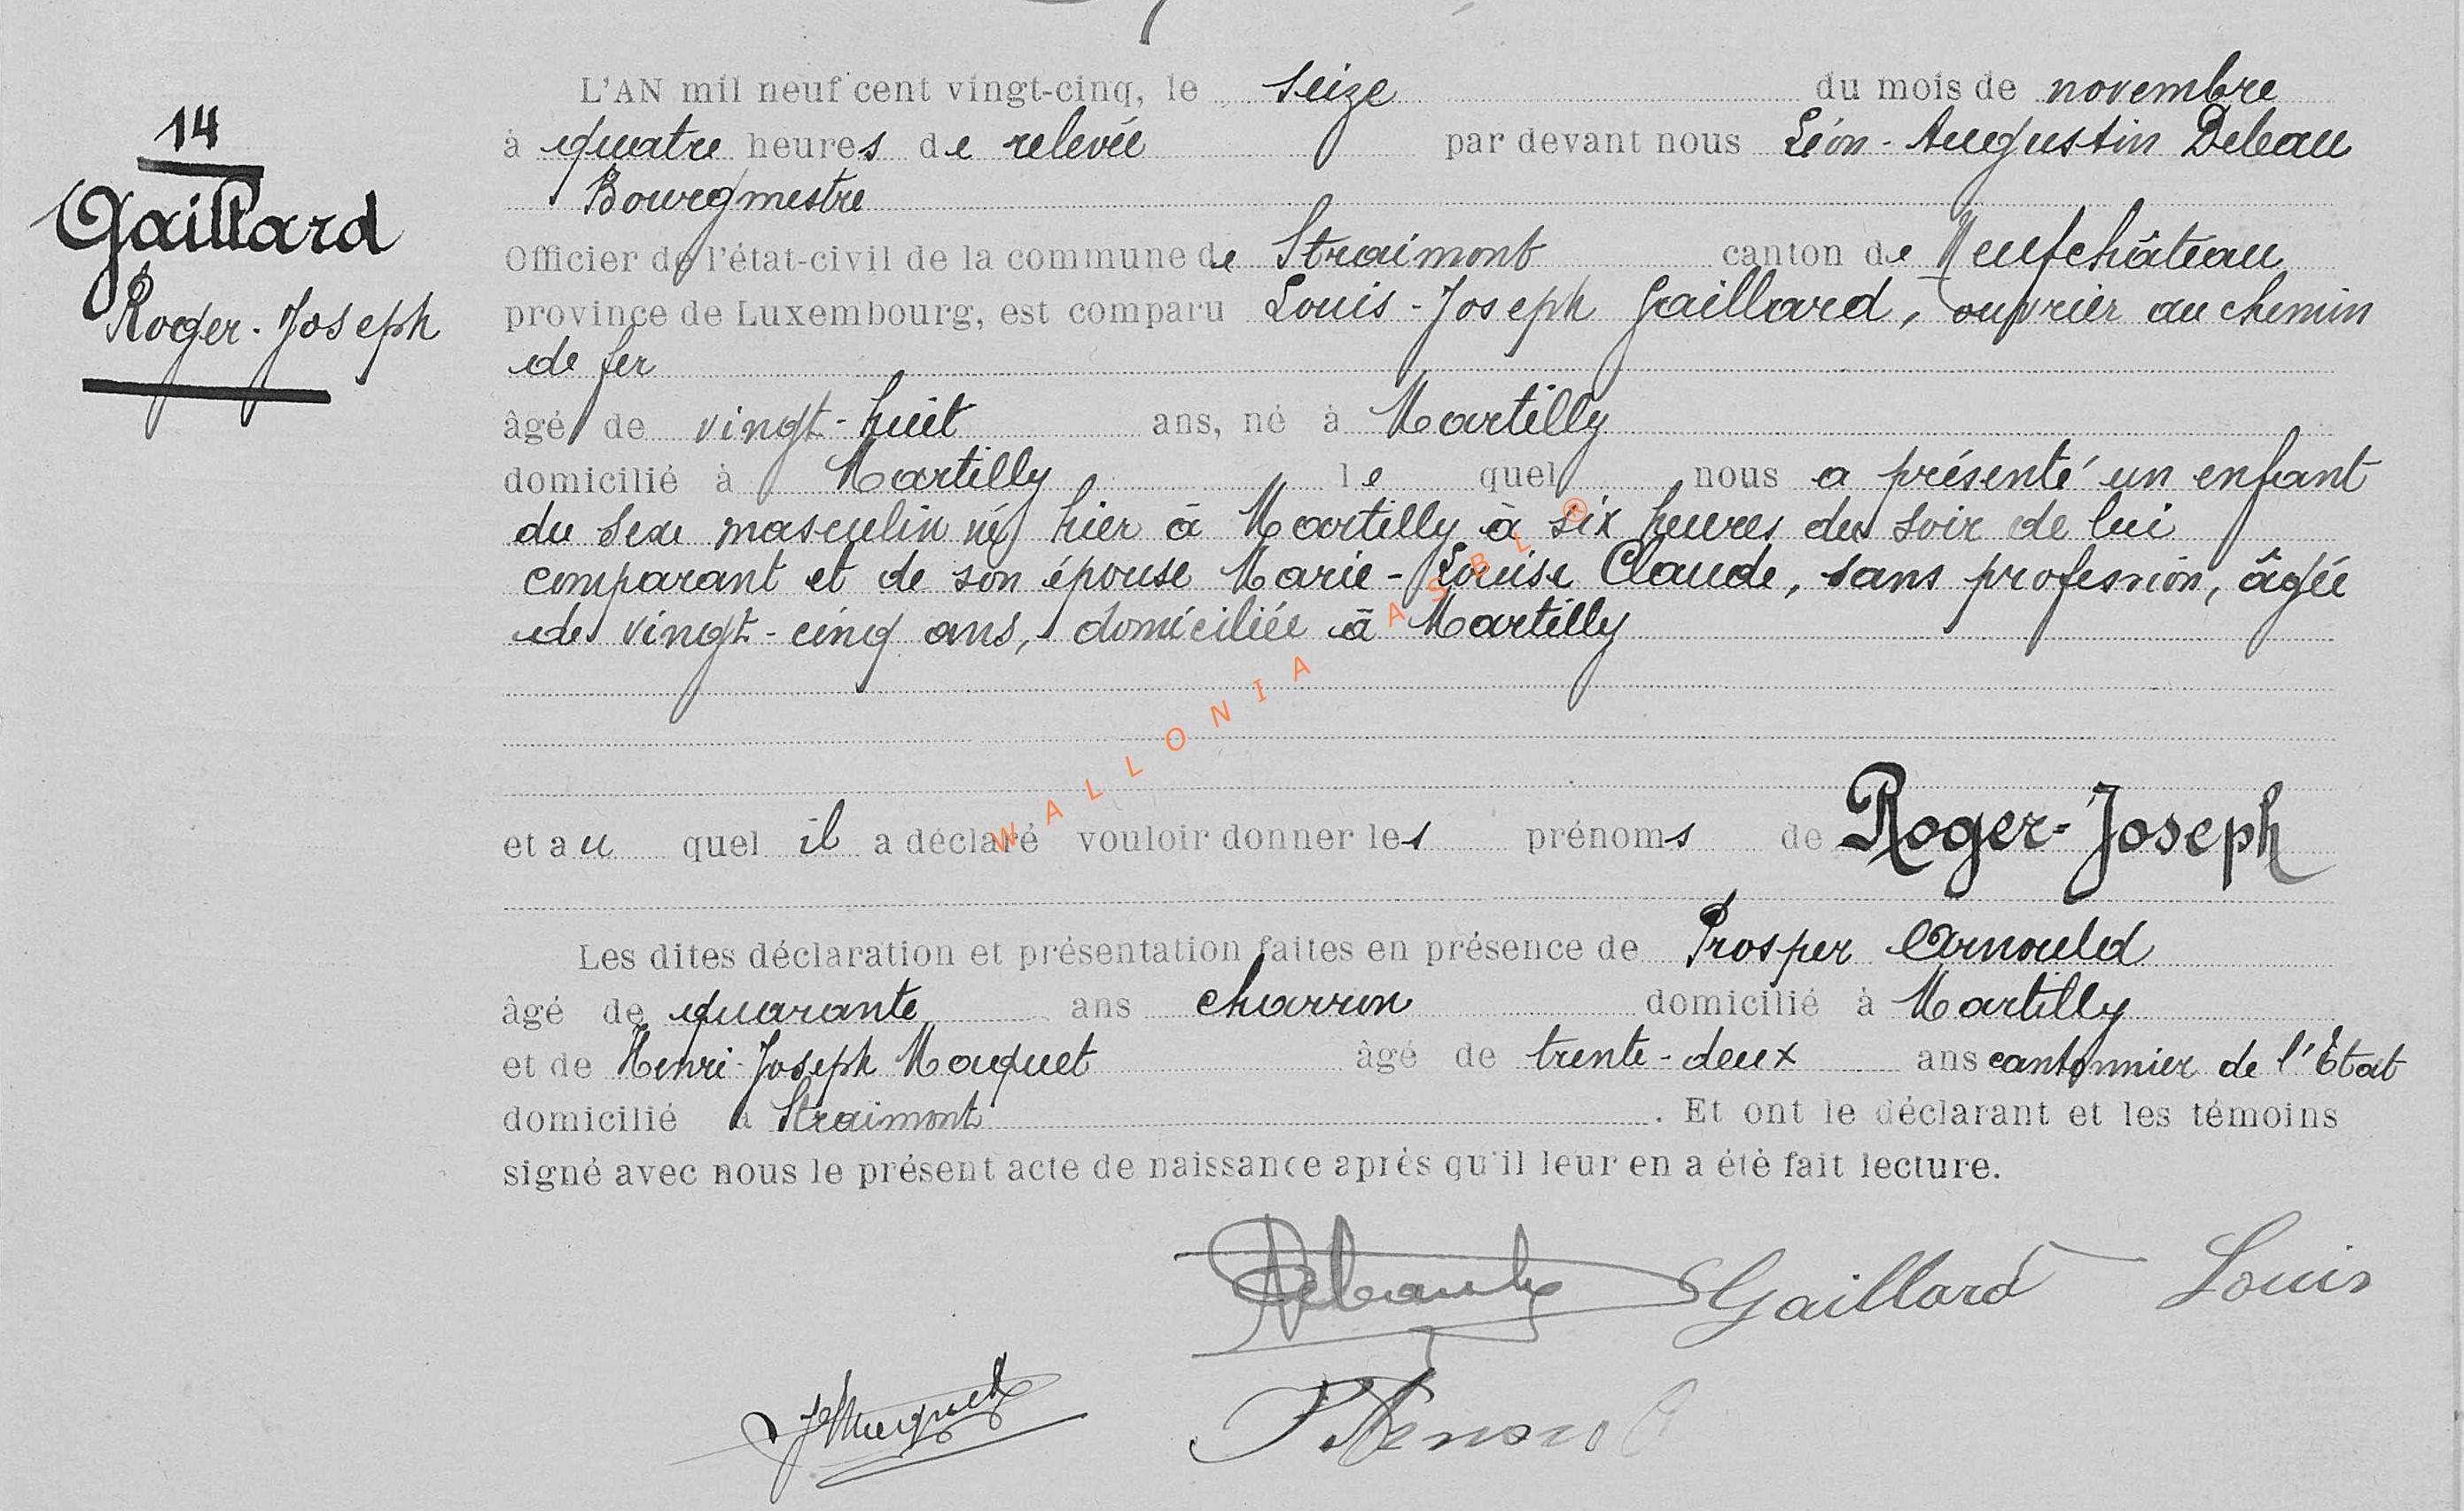 14
Gaillard
Roger-Joseph
L'AN mil neuf cent vingt-cinq, le seize du mois de novembre
à quatre heures de relevée par devant nous Léon-Augustin Debeau
Bourgmestre
Officier de l'état-civil de la commune de Straimont canton de Neufchâteau
province de Luxembourg, est comparu Louis-Joseph Gaillard, ouvrier au chemin
de fer
âgé de vingt-huit ans, né à Martilly
domicilié à Martilly le quel nous a présenté un enfant
du sexe masculin né hier à Martilly à six heures du soir de lui
comparant et de son épouse Marie-Louise Claude, sans profession, âgée
de vingt-cinq ans, domiciliée à Martilly
et au quel il a déclaré vouloir donner les prénoms de Roger-Joseph
Les dites déclaration et présentation faites en présence de Prosper Arnould
âgé de quarante ans charron domicilié à Martilly
et de Henri-Joseph Maquet âgé de trente-deux ans cantonnier de l'Etat
domicilié à Straimont. Et ont le déclarant et les témoins
signé avec nous le présent acte de naissance après qu'il leur en a été fait lecture.
Gaillard Louis
WALLONIA ASBL ®